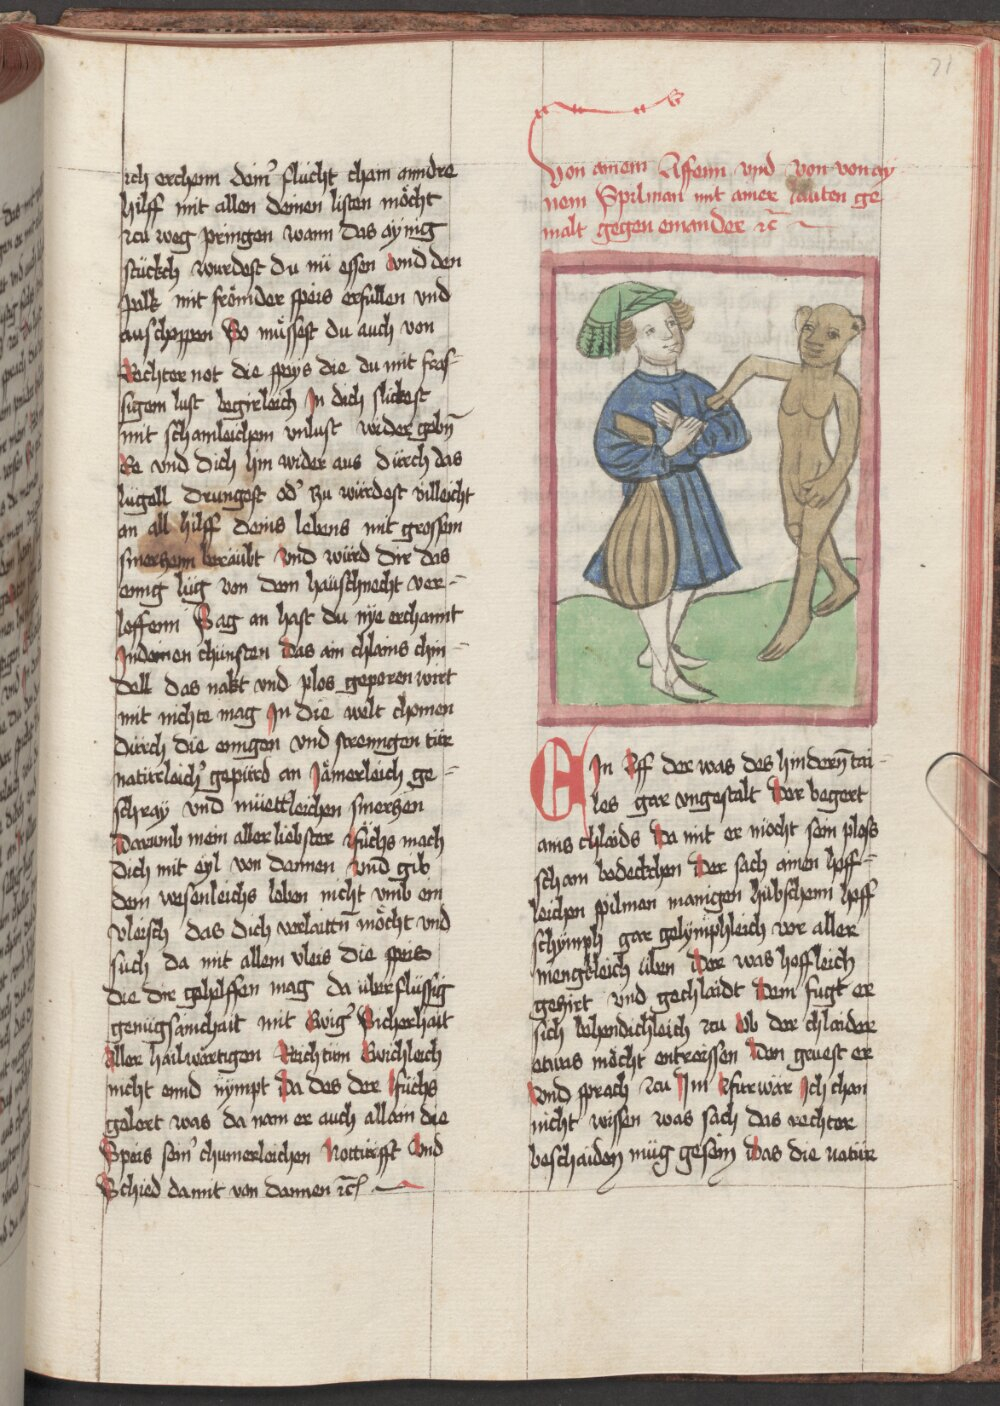 ich erchenn dein' flücht cham anndre
hilff mit allen deinen listen möcht
zcu weg pringen wann das aÿnig
stückch wurdest du nü essen vnd den
palk mit frömder speis erfüllen vnd
auschoppen So müssest du auch von
Rechter not die speys die du mit fras-
sigem lust begirleich In dich slickest
mit schamleichem vnlust wider gebñ
Re vnd dich hin wider aus dürch das
lügell drungest od' zu würdest villeicht
an all hilff deins lebens mit grossem
smerhenn beraubt vnd würd dir das
ennig lüg von dem hauschnecht ver-
loffenn Sag an hast du nÿe erchannt
In deinen chünsten das ain chlains chin-
dell das nakt vnd plos geporen wirt
mit nichte mag In die welt chomen
dürch die ennigen vnd strenngen tür
natürleich' gepürd an Jämerleich ge-
schray vnd müettleichen smerhen
Darumb mein aller liebster füchs mach
dich mit eyl von dannen vnd gib
dem wesenleichs leben nicht vmb ein
vleisch das dich verlaittñ möcht vnd
such da mit allem vleis die speis
die dir gehelffen mag da überflüssig
genügsamchait mit Ewig' Sicherhait
aller hailwärtigen Reichtum Ewichleich
nicht ennd nÿmpt Da des der füchs
gelert was da nam er auch allain die
Speis sein' chumerleichen Notturfft vnd
Schied damit von dannen zc̃
21
Von ainem Affenn vnd von von ay
nem Spilman mit ainer lauten ge
malt gegen einander zc̃
EIn Aff der was des hindern̄ tai-
les gar vngestalt Der begert
ains chlaids Da mit er möcht sein ploss
scham bedeckchen Der sach ainen hoff-
leichen spilman manigen hübschenn hoff
schÿmph gar gelÿmphleich vor aller
mengkleich üben Der was hoffleich
geziert vnd gechlaidt Dem fugt er
sich behendichleich zcu Ob der chlaider
etwas möcht entreissen Den gruest er
Vnd sprach zcu Im Afurwär Ich chan
nicht wissen was sach das rechter
beschaiden müg gesein Das die natür